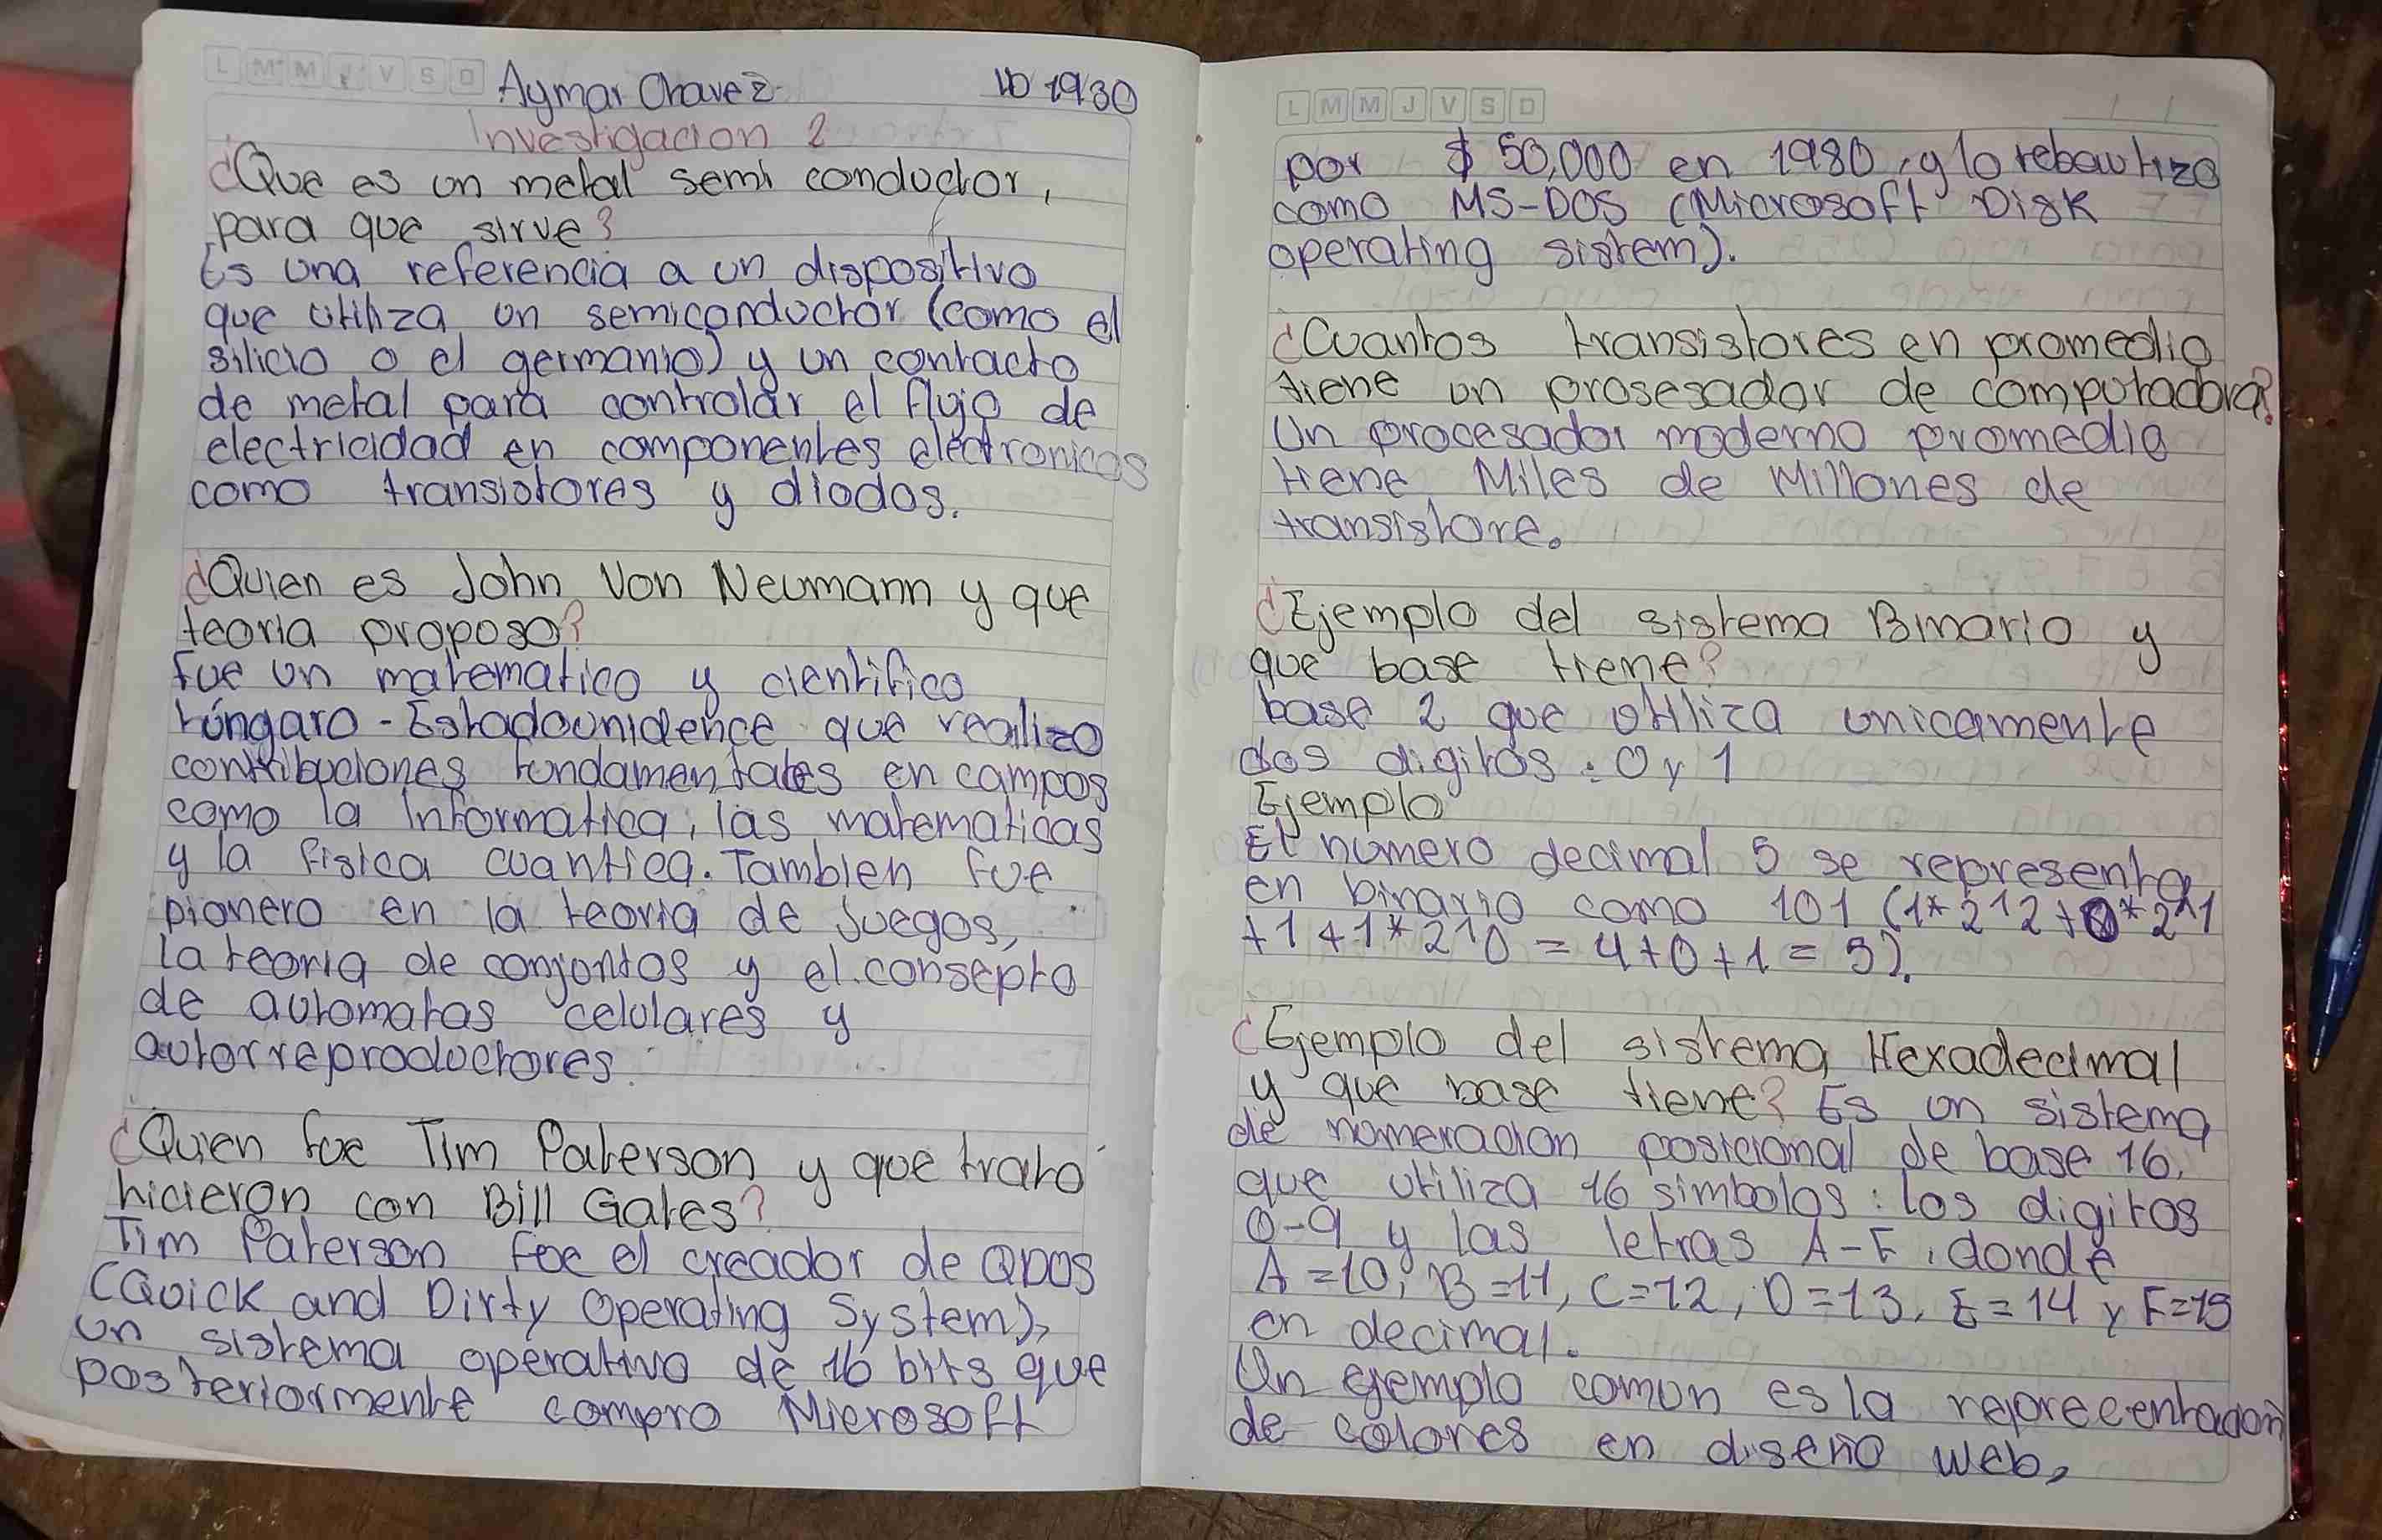 L M M J V S D Aymar Chavez ID 1930
Investigacion 2
¿Que es un metal semi conductor,
para que sirve?
Es una referencia a un dispositivo
que utiliza un semiconductor (como el
silicio o el germanio) y un contacto
de metal para controlar el flujo de
electricidad en componentes electronicos
como transistores y diodos.
¿Quien es John Von Neumann y que
teoria proposo?
Fue un matematico y cientifico
húngaro-Estadounidence que realizo
contribuciones fundamentales en campos
como la informatica, las matematicas
y la fisica cuantica. Tambien fue
pionero en la teoria de juegos,
la teoria de conjuntos y el consepto
de automatas celulares y
autorreproductores.
¿Quien fue Tim Paterson y que trato
hicieron con Bill Gates?
Tim Paterson fue el creador de QDOS
(Quick and Dirty Operating System),
un sistema operativo de 16 bits que
posteriormente compro Microsoft
L M M J V S D
por $ 50,000 en 1980, y lo rebautizo
como MS-DOS (Microsoft Disk
operating sistem).
¿Cuantos transistores en promedio
tiene un prosesador de computadora?
Un procesador moderno promedio
tiene Miles de Millones de
transistore.
¿Ejemplo del sistema Binario y
que base tiene?
base 2 que utiliza unicamente
dos digitos: 0 y 1
Ejemplo
El numero decimal 5 se representa
en binario como 101 (1*2^2+0*2^1
+1+1*2^0 = 4+0+1 = 5).
¿Ejemplo del sistema Hexadecimal
y que base tiene? Es un sistema
de numeracion posicional de base 16,
que utiliza 16 simbolos: los digitos
0-9 y las letras A-F, donde
A=10, B=11, C=12, D=13, E=14 y F=15
en decimal.
Un ejemplo comun es la reprecentacion
de colores en diseño web,